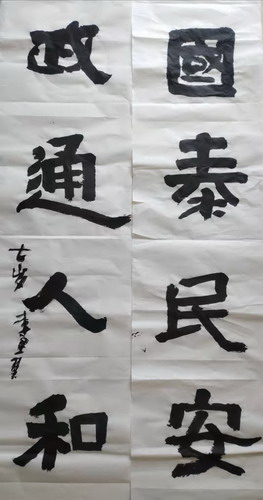 國泰民安
政通人和
七岁